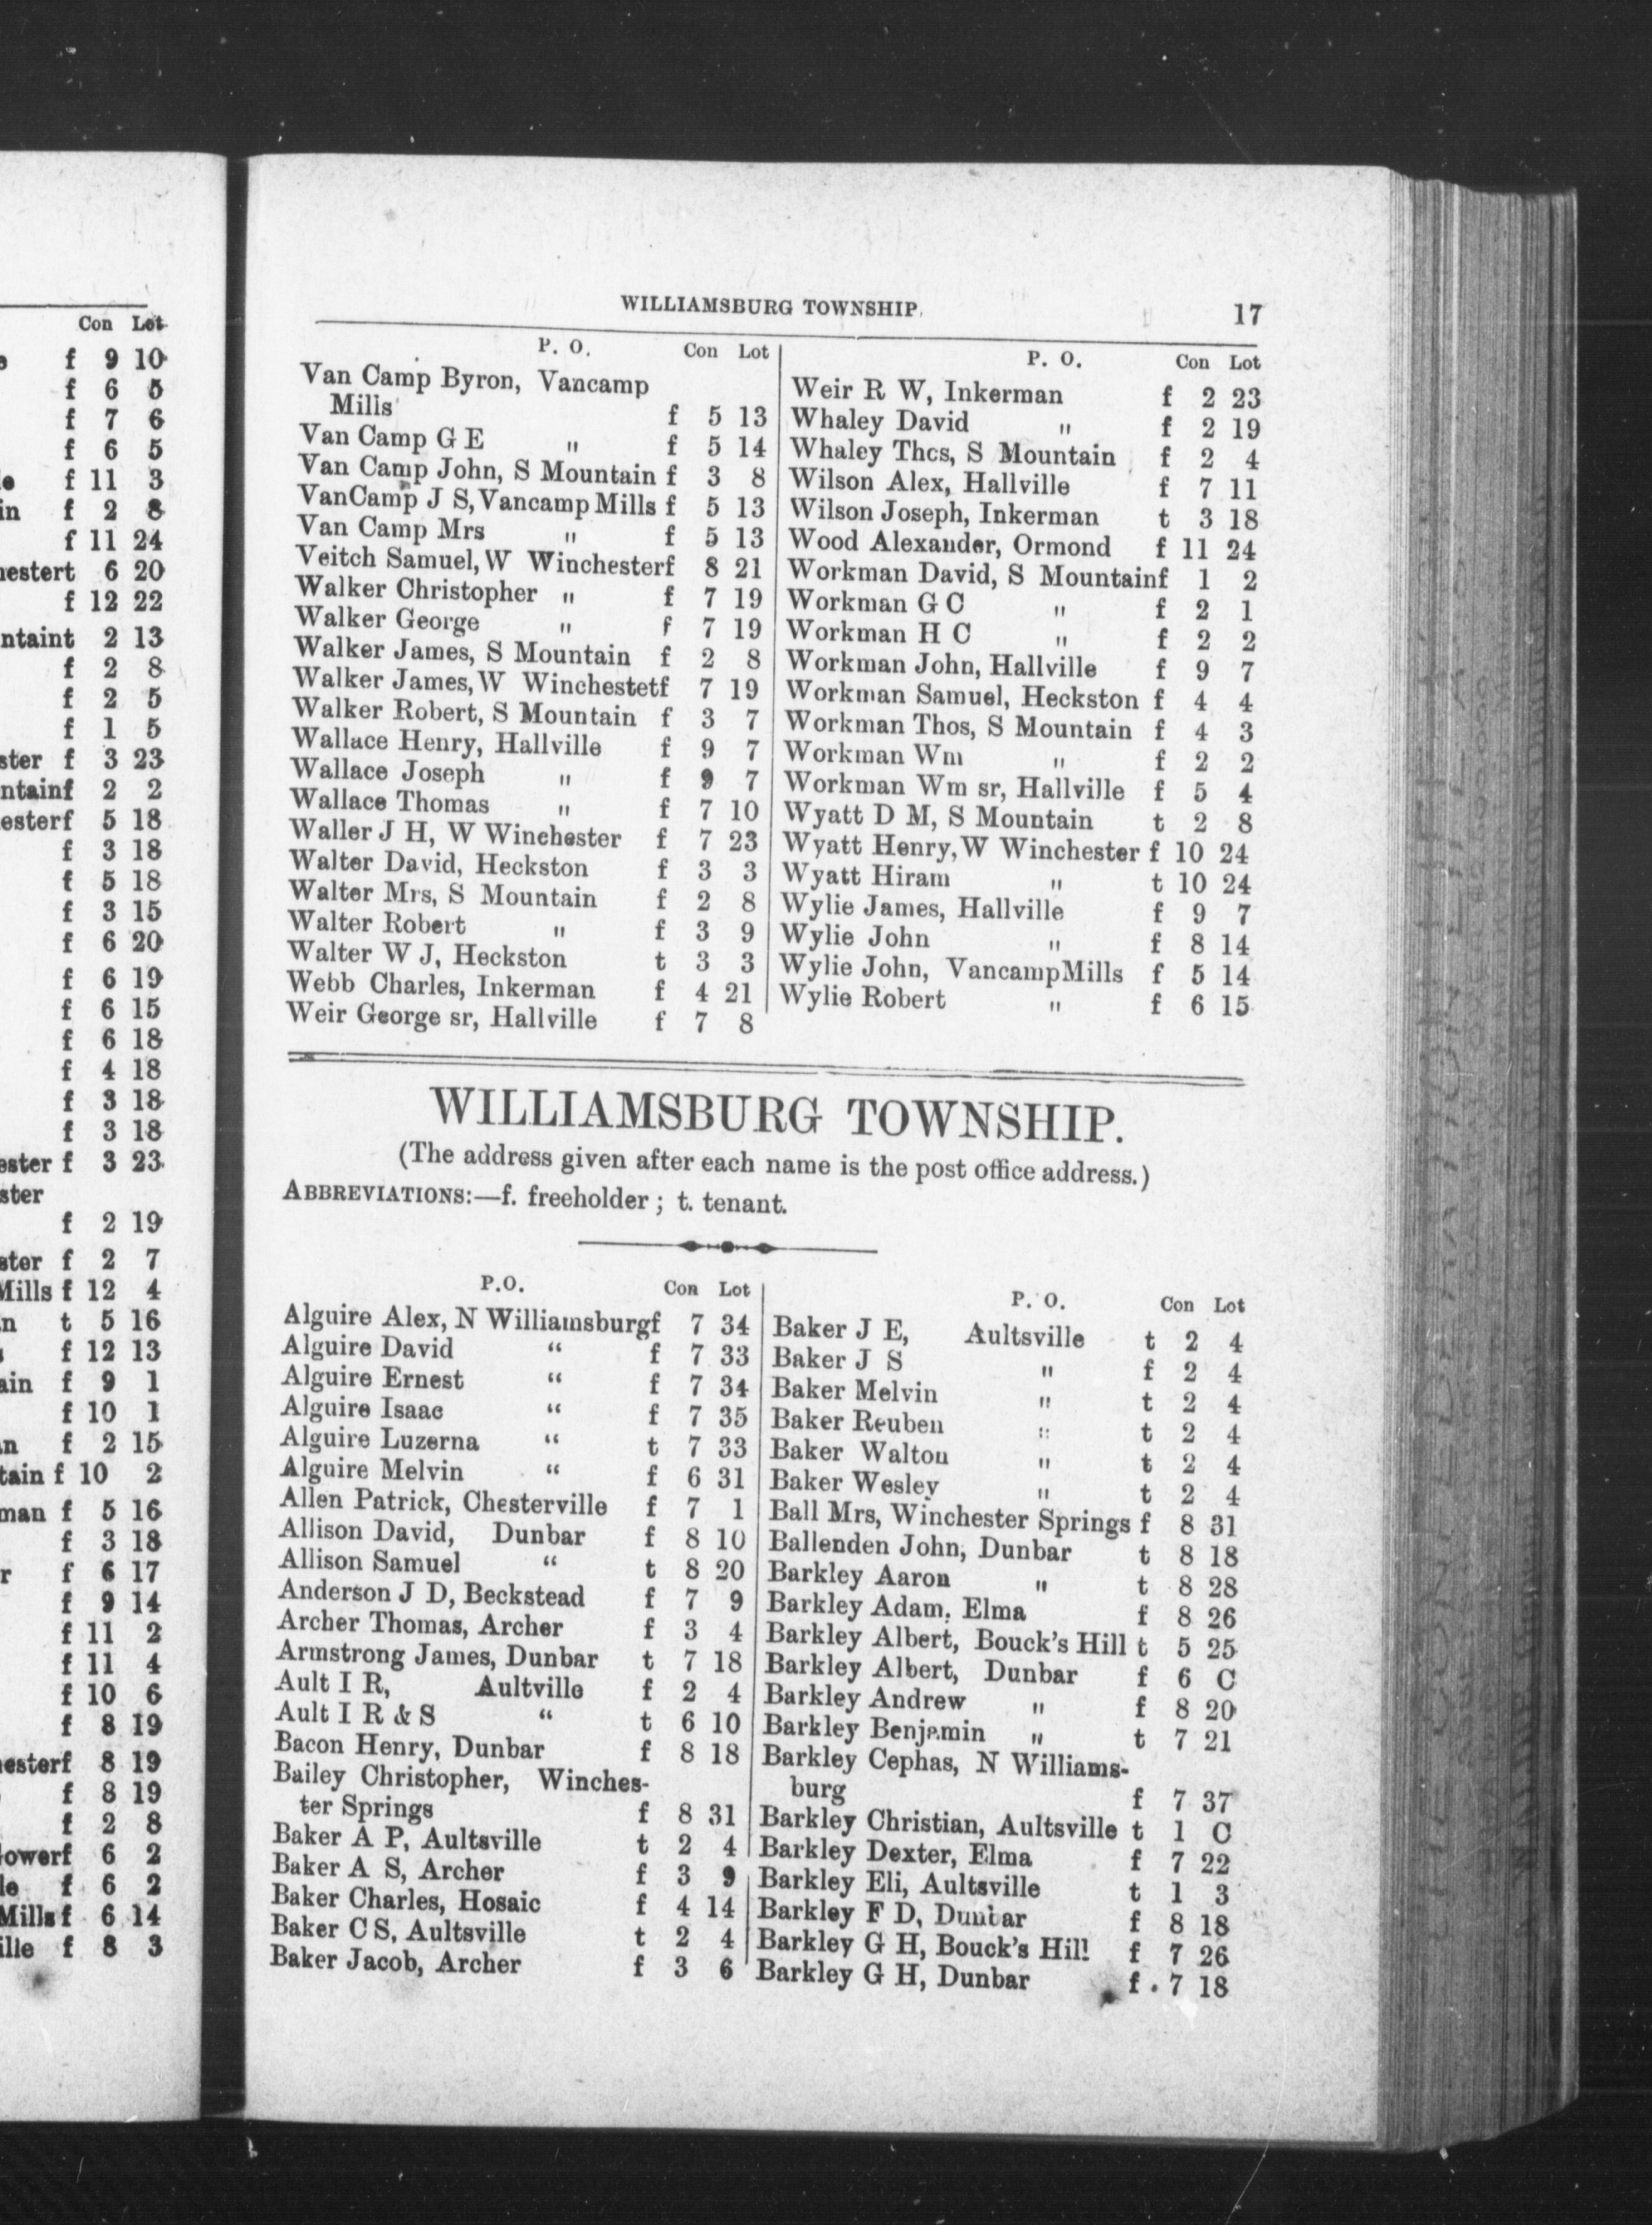 Con Lot
f 9 10
f 6 5
f 7 6
f 6 5
f 11 3
in f 2 8
f 11 24
hestert 6 20
f 12 22
ntaint 2 13
f 2 8
f 2 5
f 1 5
ster f 3 23
ntainf 2 2
esterf 5 18
f 3 18
f 5 18
f 3 15
f 6 20
f 6 19
f 6 15
f 6 18
f 4 18
f 3 18
f 3 18
ester f 3 23
ster
f 2 19
ster f 2 7
Mills f 12 4
n t 5 16
f 12 13
ain f 9 1
f 10 1
n f 2 15
tain f 10 2
man f 5 16
f 3 18
r f 6 17
f 9 14
f 11 2
f 11 4
f 10 6
f 8 19
hesterf 8 19
f 8 19
f 2 8
lowerf 6 2
le f 6 2
Mills f 6 14
ille f 8 3
WILLIAMSBURG TOWNSHIP. 17
P. O. Con Lot
Van Camp Byron, Vancamp
Mills f 5 13
Van Camp G E " f 5 14
Van Camp John, S Mountain f 3 8
VanCamp J S, Vancamp Mills f 5 13
Van Camp Mrs " f 5 13
Veitch Samuel, W Winchesterf 8 21
Walker Christopher " f 7 19
Walker George " f 7 19
Walker James, S Mountain f 2 8
Walker James, W Winchestetf 7 19
Walker Robert, S Mountain f 3 7
Wallace Henry, Hallville f 9 7
Wallace Joseph " f 9 7
Wallace Thomas " f 7 10
Waller J H, W Winchester f 7 23
Walter David, Heckston f 3 3
Walter Mrs, S Mountain f 2 8
Walter Robert " f 3 9
Walter W J, Heckston t 3 3
Webb Charles, Inkerman f 4 21
Weir George sr, Hallville f 7 8
P. O. Con Lot
Weir R W, Inkerman f 2 23
Whaley David " f 2 19
Whaley Thcs, S Mountain f 2 4
Wilson Alex, Hallville f 7 11
Wilson Joseph, Inkerman t 3 18
Wood Alexander, Ormond f 11 24
Workman David, S Mountainf 1 2
Workman G C " f 2 1
Workman H C " f 2 2
Workman John, Hallville f 9 7
Workman Samuel, Heckston f 4 4
Workman Thos, S Mountain f 4 3
Workman Wm " f 2 2
Workman Wm sr, Hallville f 5 4
Wyatt D M, S Mountain t 2 8
Wyatt Henry, W Winchester f 10 24
Wyatt Hiram " t 10 24
Wylie James, Hallville f 9 7
Wylie John " f 8 14
Wylie John, VancampMills f 5 14
Wylie Robert " f 6 15
WILLIAMSBURG TOWNSHIP.
(The address given after each name is the post office address.)
ABBREVIATIONS:—f. freeholder; t. tenant.
P.O. Con Lot
Alguire Alex, N Williamsburgf 7 34
Alguire David " f 7 33
Alguire Ernest " f 7 34
Alguire Isaac " f 7 35
Alguire Luzerna " t 7 33
Alguire Melvin " f 6 31
Allen Patrick, Chesterville f 7 1
Allison David, Dunbar f 8 10
Allison Samuel " t 8 20
Anderson J D, Beckstead f 7 9
Archer Thomas, Archer f 3 4
Armstrong James, Dunbar t 7 18
Ault I R, Aultville f 2 4
Ault I R & S " t 6 10
Bacon Henry, Dunbar f 8 18
Bailey Christopher, Winches-
ter Springs f 8 31
Baker A P, Aultsville t 2 4
Baker A S, Archer f 3 9
Baker Charles, Hosaic f 4 14
Baker C S, Aultsville t 2 4
Baker Jacob, Archer f 3 6
P. O. Con Lot
Baker J E, Aultsville t 2 4
Baker J S " f 2 4
Baker Melvin " t 2 4
Baker Reuben " t 2 4
Baker Walton " t 2 4
Baker Wesley " t 2 4
Ball Mrs, Winchester Springs f 8 31
Ballenden John, Dunbar t 8 18
Barkley Aaron " t 8 28
Barkley Adam. Elma f 8 26
Barkley Albert, Bouck's Hill t 5 25
Barkley Albert, Dunbar f 6 C
Barkley Andrew " f 8 20
Barkley Benjamin " t 7 21
Barkley Cephas, N Williams-
burg f 7 37
Barkley Christian, Aultsville t 1 C
Barkley Dexter, Elma f 7 22
Barkley Eli, Aultsville t 1 3
Barkley F D, Dunbar f 8 18
Barkley G H, Bouck's Hill f 7 26
Barkley G H, Dunbar f 7 18